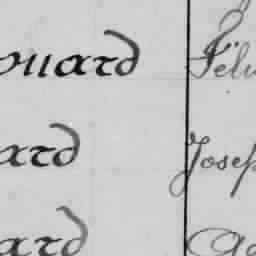 ouard Féli
ard Josep
ard